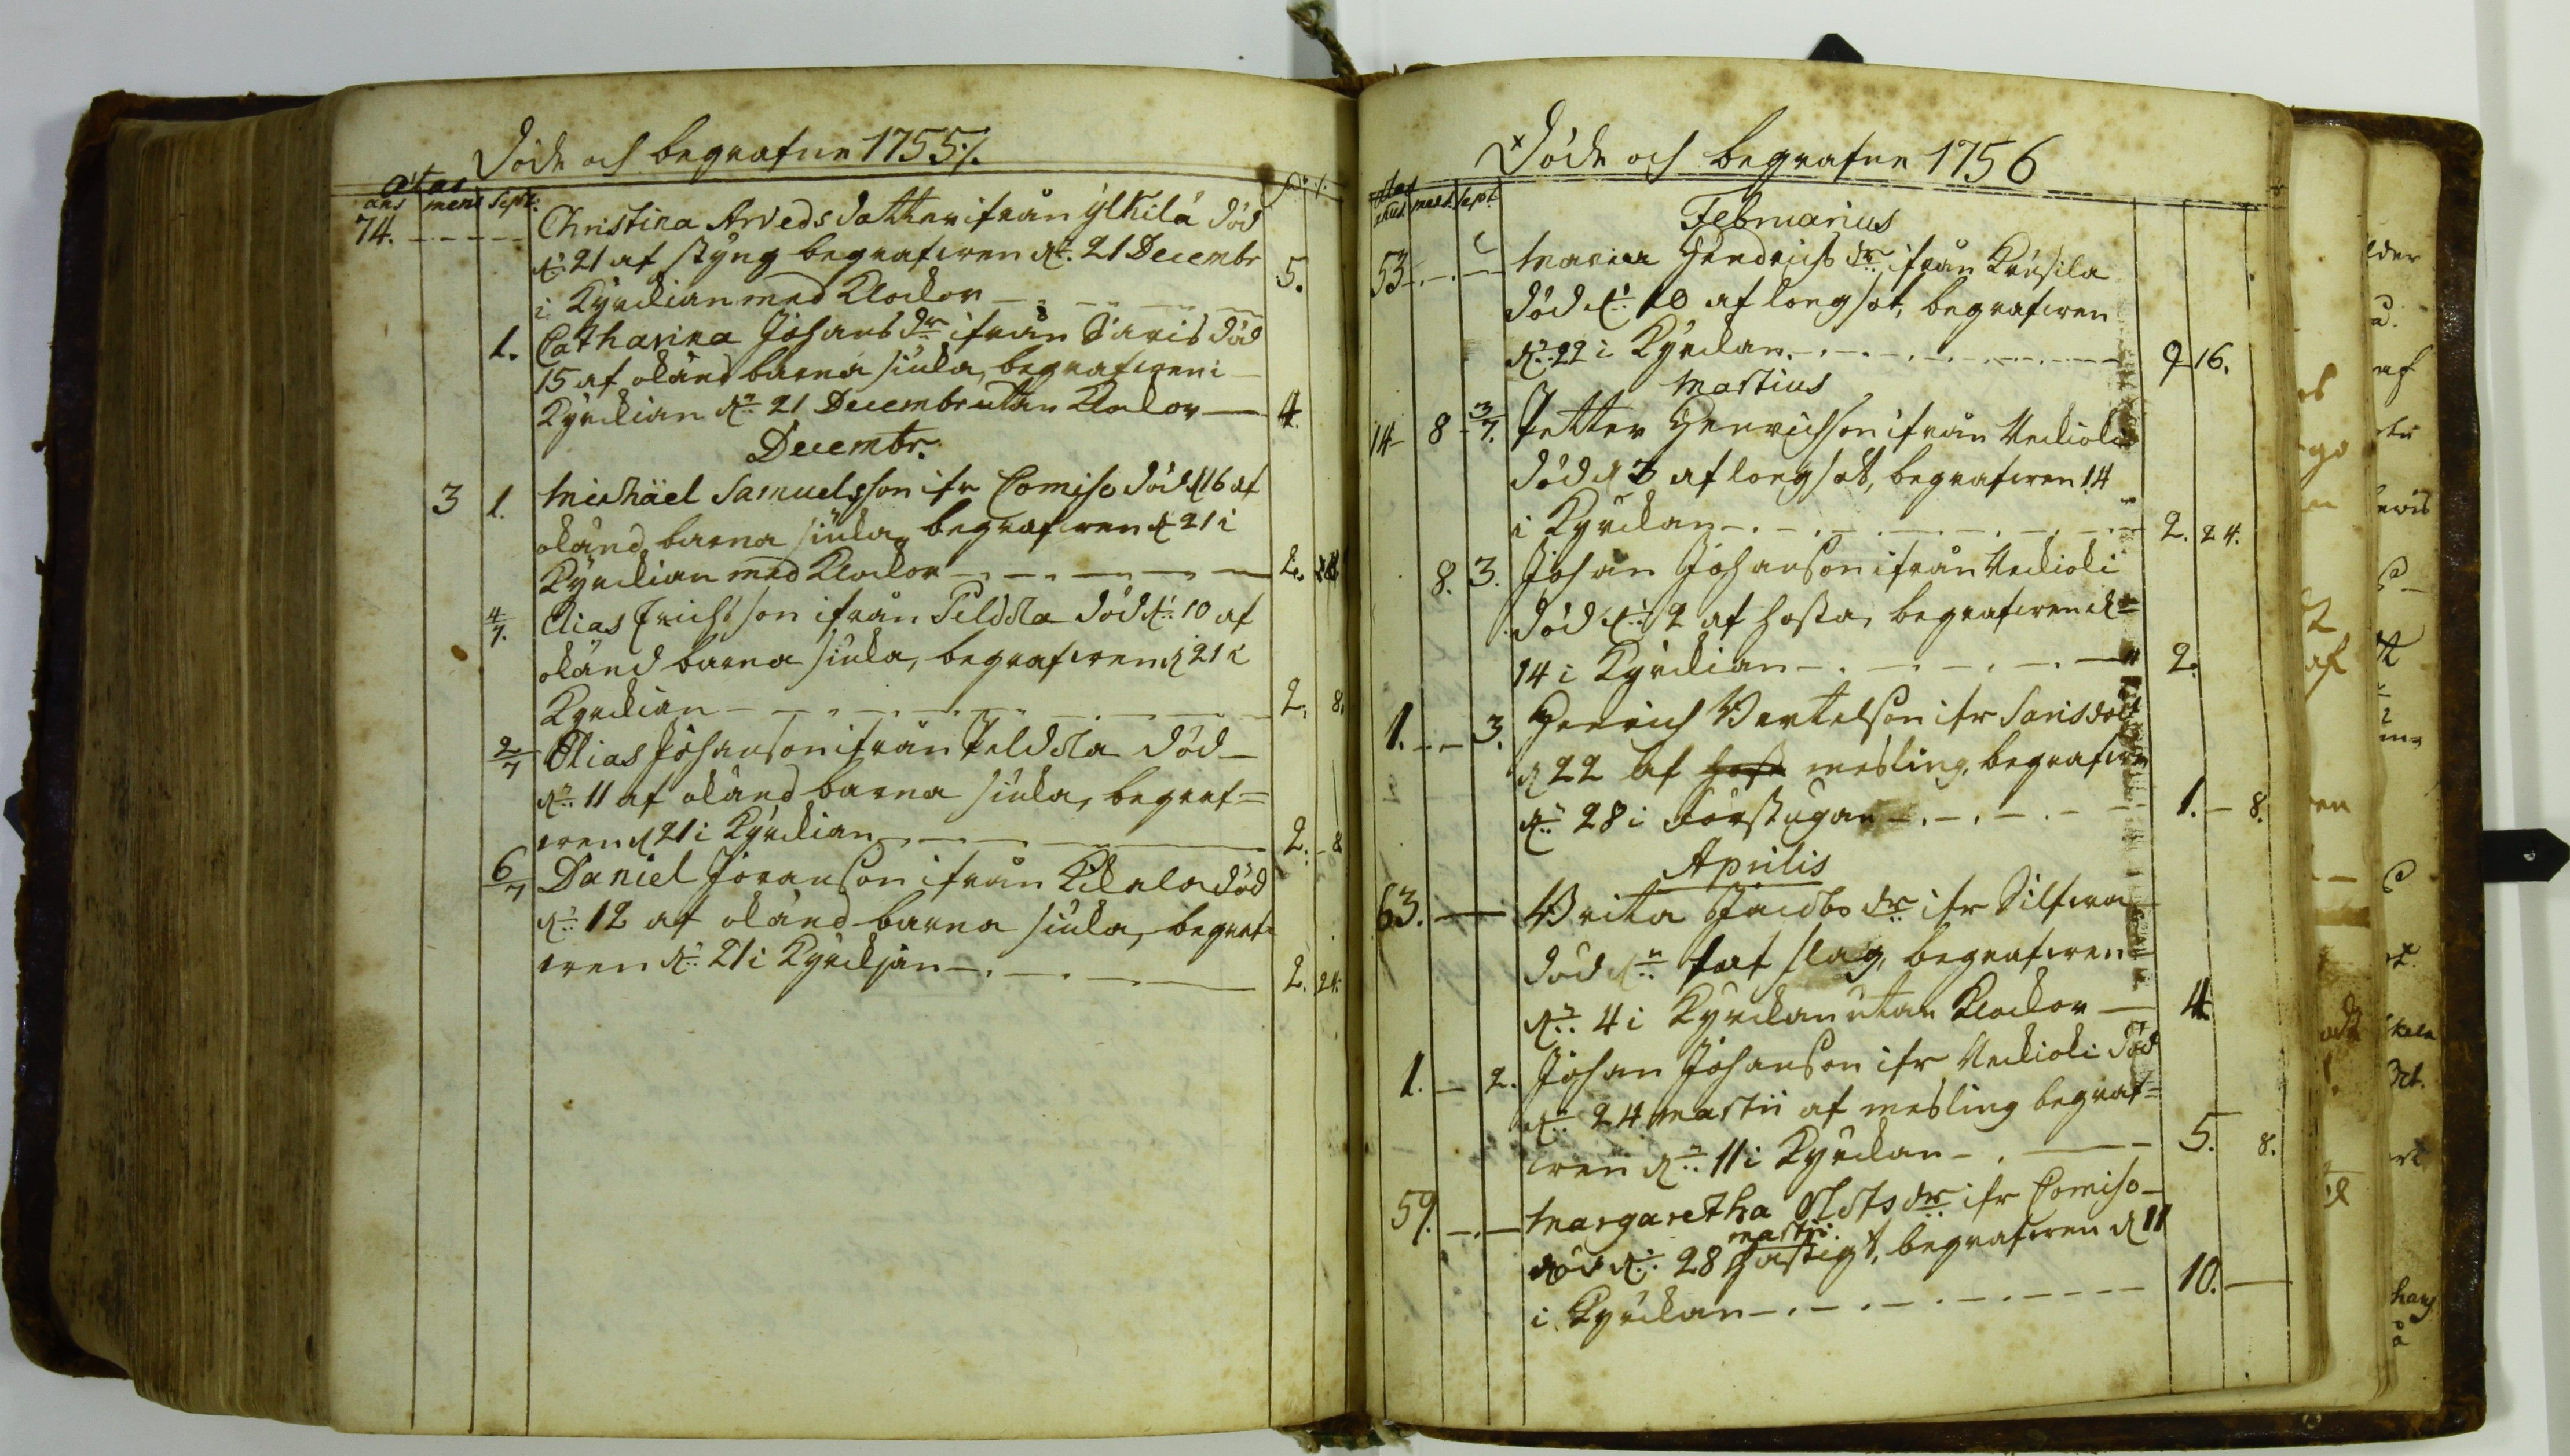 Döde och begrafne 1755 ⁒
ætas
ans mens sept.
74. Christina Arveds dotter ifrån ÿlkilä död
d. 21 af styng begrafwen d. 21 Decembr
i Kÿrckian med Klockor 5.
1. Catharina Johans dr ifrån Saris död
15 af okänd barna siuka, begrafwen i
Kÿrckian d. 21 Decembr utan Klockor 4.
Decembr.
3 1. Michäel Samuelsson ifr Comiso död d 16 af
okänd barna siuka begrafwen d 21 i
Kÿrckian med Klockor 2.
4/7. Elias Erichsson ifrån Peldåla död d. 10 af
okänd barna siuka, begrafwen d 21 i
Kyrckian 2. 8.
2/7 Elias Johanson ifrån Peldåla död
d. 11 af okänd barna siuka, begraf=
wen d 21 i Kÿrckian 2. 8
6/7 Daniel Joranson ifrån Kickala död
d. 12 af okänd barna siuka, begraf=
wen d. 21 i Kÿrckjan 2. 24.
Döde och begrafne 1756
ætas
mens. sept.
Februarius
53 Maria Hendrichs dr ifrån Krusila
död d. 10 af longsot, begrafwen
d. 22 i Kÿrckan 9 16.
Martius
14 8 3/7. Petter Henrichson ifrån Uckioki
död d 3 af longsot, begrafwen 14
i Kÿrckan 2. 24.
8. 3. Johan Johanson ifrån Uckioki
död d. 2 af hosta, begrafwen d.
14 i Kÿrckian 2.
1. 3. Henrich Bertelson ifr Saris död
d 22 af host mesling, begrafwen
d. 28 i Förstugan 1. 8.
Aprilis
63. Brita Jacobs dr ifr Silfwra
död d. 1 af slag, begrafwen
d. 4 i Kyrckan utan Klockor 4.
1. 2. Johan Johanson ifr Uckioki död
d. 24 martii af mesling begraf=
wen d. 11 i Kyrckan 5. 8.
59. Margaretha Olofs dr ifr Comiso
martii
död d. 28 hastigt, begrafwen d 11
i Kÿrckan 10.